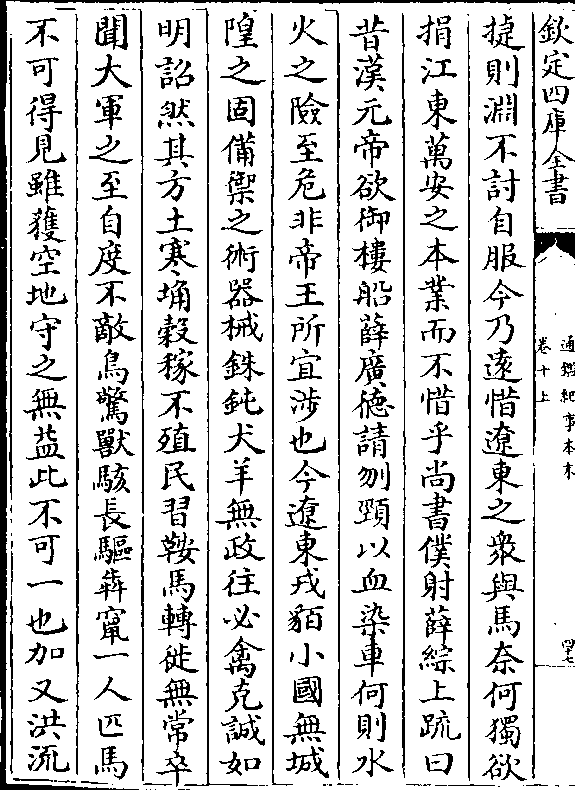 欽定四庫全書
通鑑紀事本末
卷十上
四十七
㨗則淵不討自服今乃逺惜遼東之衆與馬奈何獨欲
捐江東萬安之本業而不惜乎尚書僕射薛綜上疏曰
昔漢元帝欲御樓船薛廣徳請刎頸以血染車何則水
火之險至危非帝王所宜涉也今遼東戎貊小國無城
隍之固備禦之術器械銖鈍犬羊無政往必禽克誠如
明詔然其方土寒埆榖稼不殖民習鞍馬轉徙無常卒
聞大軍之至自度不敵鳥驚獸駭長驅犇竄一人匹馬
不可得見雖獲空地守之無益此不可一也加又洪流